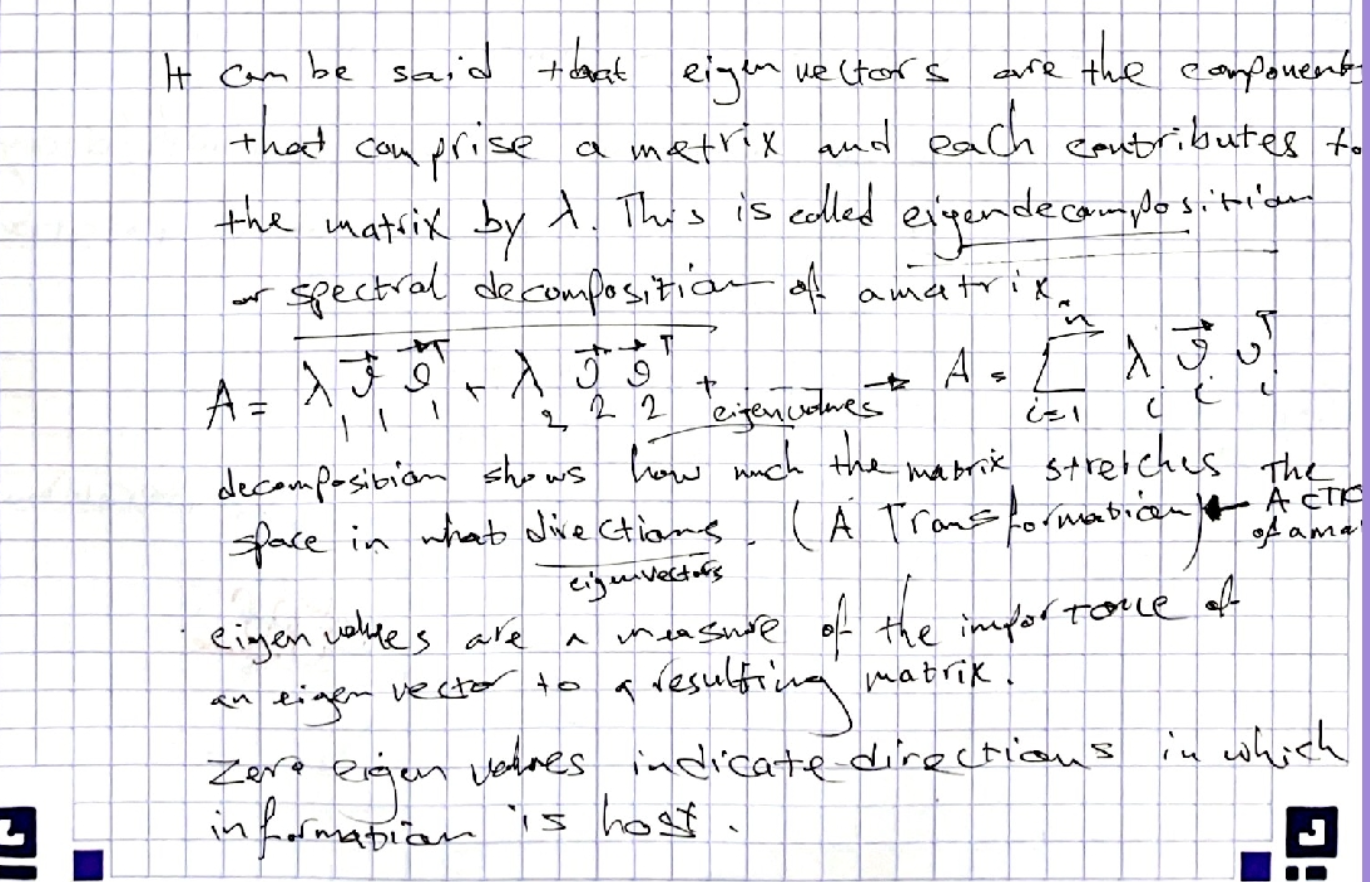 It can be said that eigenvectors are the components
that comprise a matrix and each contributes to
the matrix by λ. This is called eigendecomposition
or spectral decomposition of a matrix.
A = λ₁ v⃗₁ v⃗₁ᵀ + λ₂ v⃗₂ v⃗₂ᵀ + → A = Σᵢ₌₁ⁿ λᵢ v⃗ᵢ vᵢᵀ
eigenvalues
decomposition shows how much the matrix stretches the
space in what directions. (A Transformation) ←
eigenvectors
of a
eigenvalues are a measure of the importance of
an eigenvector to a resulting matrix.
Zero eigen values indicate directions in which
information is lost.